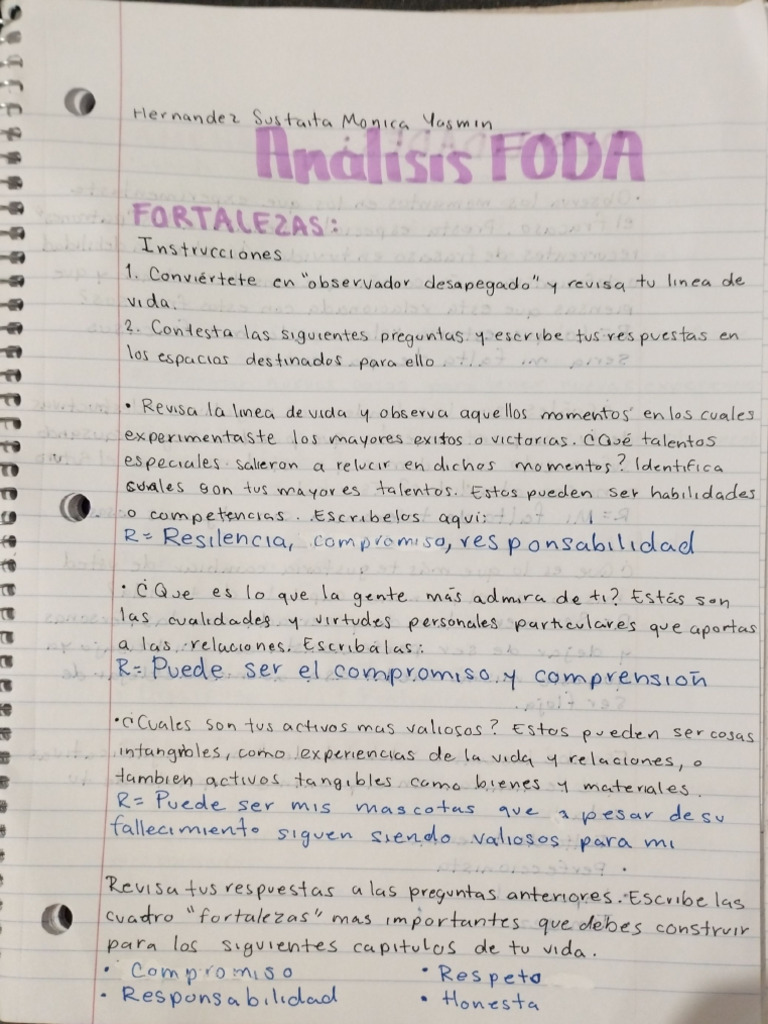 Hernandez Sustaita Monica Yasmin
Análisis FODA
FORTALEZAS:
Instrucciones
1. Conviértete en "observador desapegado" y revisa tu linea de
vida.
2. Contesta las siguientes preguntas y escribe tus respuestas en
los espacios destinados para ello.
• Revisa la linea de vida y observa aquellos momentos en los cuales
experimentaste los mayores exitos o victorias. ¿Qué talentos
especiales salieron a relucir en dichos momentos? Identifica
cuales son tus mayores talentos. Estos pueden ser habilidades
o competencias. Escribelos aqui:
R= Resilencia, compromiso, responsabilidad
• ¿Que es lo que la gente más admira de ti? Estás son
las cualidades y virtudes personales particulares que aportas
a las relaciones. Escribálas:
R= Puede ser el compromiso y comprensión
• ¿Cuales son tus activos mas valiosos? Estos pueden ser cosas
intangibles, como experiencias de la vida y relaciones, o
tambien activos tangibles como bienes y materiales.
R= Puede ser mis mascotas que a pesar de su
fallecimiento siguen siendo valiosos para mi
Revisa tus respuestas a las preguntas anteriores. Escribe las
cuadro "fortalezas" mas importantes que debes construir
para los siguientes capitulos de tu vida.
• Compromiso • Respeto
• Responsabilidad • Honesta